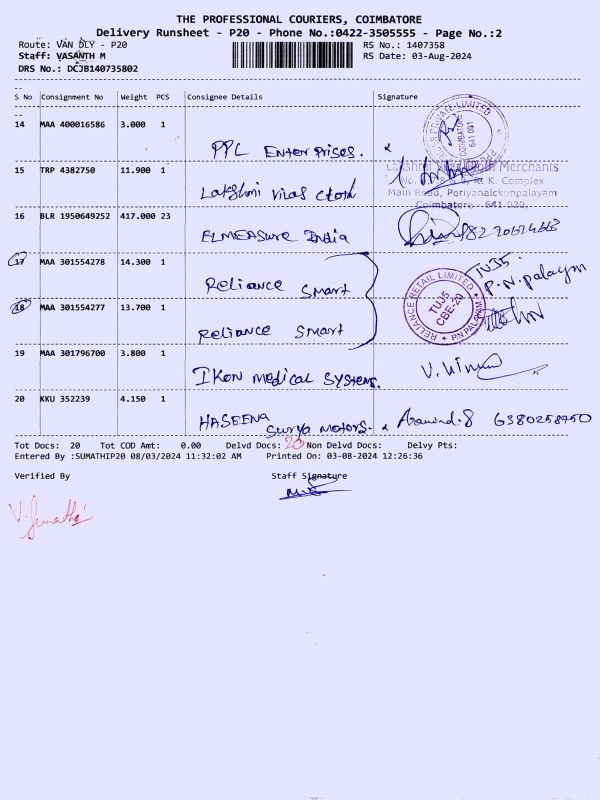 THE PROFESSIONAL COURIERS, COIMBATORE
Delivery Runsheet - P20 - Phone No.:0422-3505555 - Page No.:2
Route: VAN DLY - P20 RS No.: 1407358
Staff: VASANTH M RS Date: 03-Aug-2024
DRS No.: DCJB140735802
S No Consignment No Weight PCS Consignee Details Signature
14 MAA 400016586 3.000 1
PPL Enterprises.
PRIVATE LIMITED
COIMBATORE
641 031
15 TRP 4382750 11.900 1
Lakshmi Vilas Cloth
Lakshmi Vilas Cloth Merchants
R. K. Complex
Main Road, Periyanaickenpalayam
Coimbatore - 641 020.
16 BLR 1950649252 417.000 23
ELMEASURE India
17 MAA 301554278 14.300 1
Reliance Smart
TUJ5
P.N.palaym
RELIANCE RETAIL LIMITED
TUJ5
CBE-20
18 MAA 301554277 13.700 1
Reliance Smart
19 MAA 301796700 3.800 1
IKON medical Systems.
20 KKU 352239 4.150 1
HASEENA
Surya Motors. Aravind.S 6380258450
Tot Docs: 20 Tot COD Amt: 0.00 Delvd Docs: 20 Non Delvd Docs: Delvy Pts:
Entered By :SUMATHIP20 08/03/2024 11:32:02 AM Printed On: 03-08-2024 12:26:36
Verified By Staff Signature
V. Sumathi